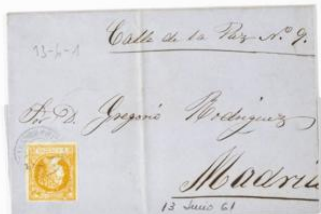 Calle de la Paz N.º 9.
13-6-1
Sor D. Gregorio Rodriguez
Madrid
13 Junio 61